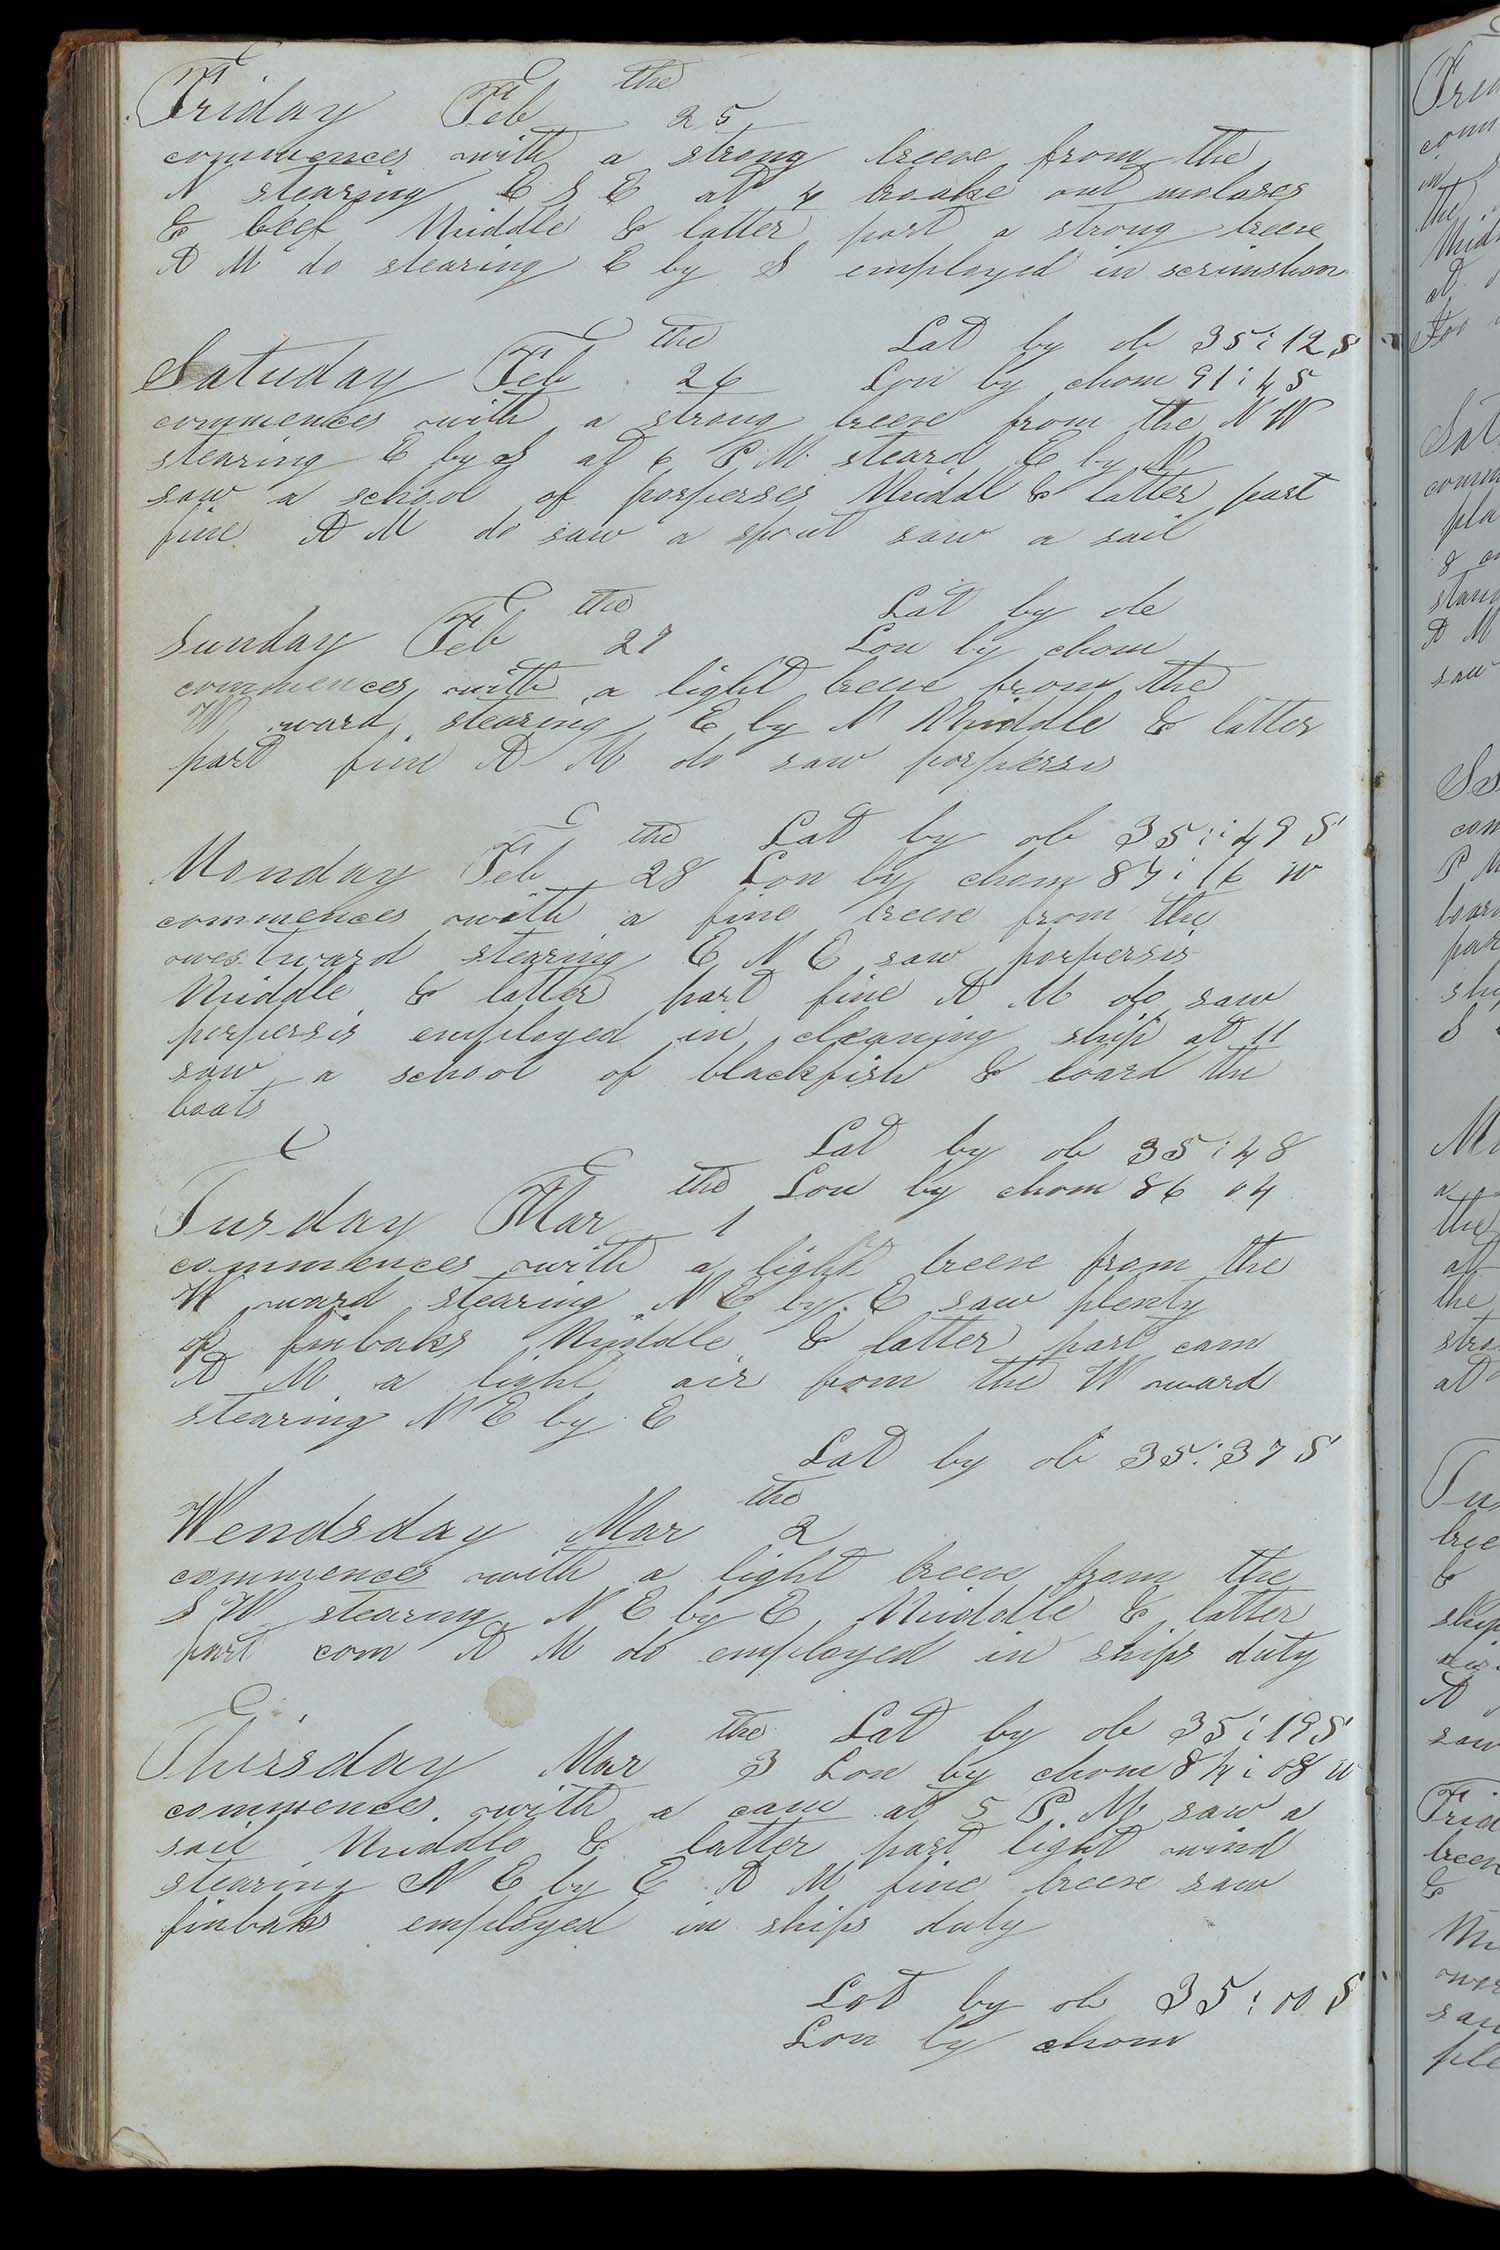 Friday Feb the 25
commences with a strong breeze from the
N stearing E S E at 4 broake out molases
& beef Middle & latter part a strong breese
A M do stearing E by S employed in scrimshon
Lat by ob 35:12 S
Saturday Feb the 26 Lon by chom 91:45
commences with a strong breese from the N W
stearing E by S at 6 P M steard E by N
saw a school of porperses Middl & latter part
fine A M do saw a spout saw a sail
Lat by ob
Sunday Feb the 27 Lon by chom
commences with a light breese from the
W ward stearing E by N Middle & latter
part fine A M do saw porperses
Lat by ob 35:49 S
Monday Feb the 28 Lon by chom 87:16 W
commences with a fine breese from the
westward stearing E N E saw porperses
Middle & latter part fine A M do saw
porperses employed in cleaning ship at 11
saw a school of blackfish & loard the
boats
Lat by ob 35:48
Tusday Mar the 1 Lon by chom 86 04
commences with a light breese from the
W ward stearing N E by E saw plenty
of finbaks Middle & latter part cam
A M a light air from the W ward
stearing N E by E
Lat by ob 35:37 S
Wendsday Mar the 2
commences with a light breese from the
S W stearing N E by E Middle & latter
part com A M do employed in ships duty
Lat by ob 35:19 S
Thirsday Mar the 3 Lon by chom 84:08 W
commences with a cam at 5 P M saw a
sail Middle & latter part light wind
stearing N E by E A M fine breese saw
finbaks employed in ships duty
Lat by ob 35:00 S
Lon by chom